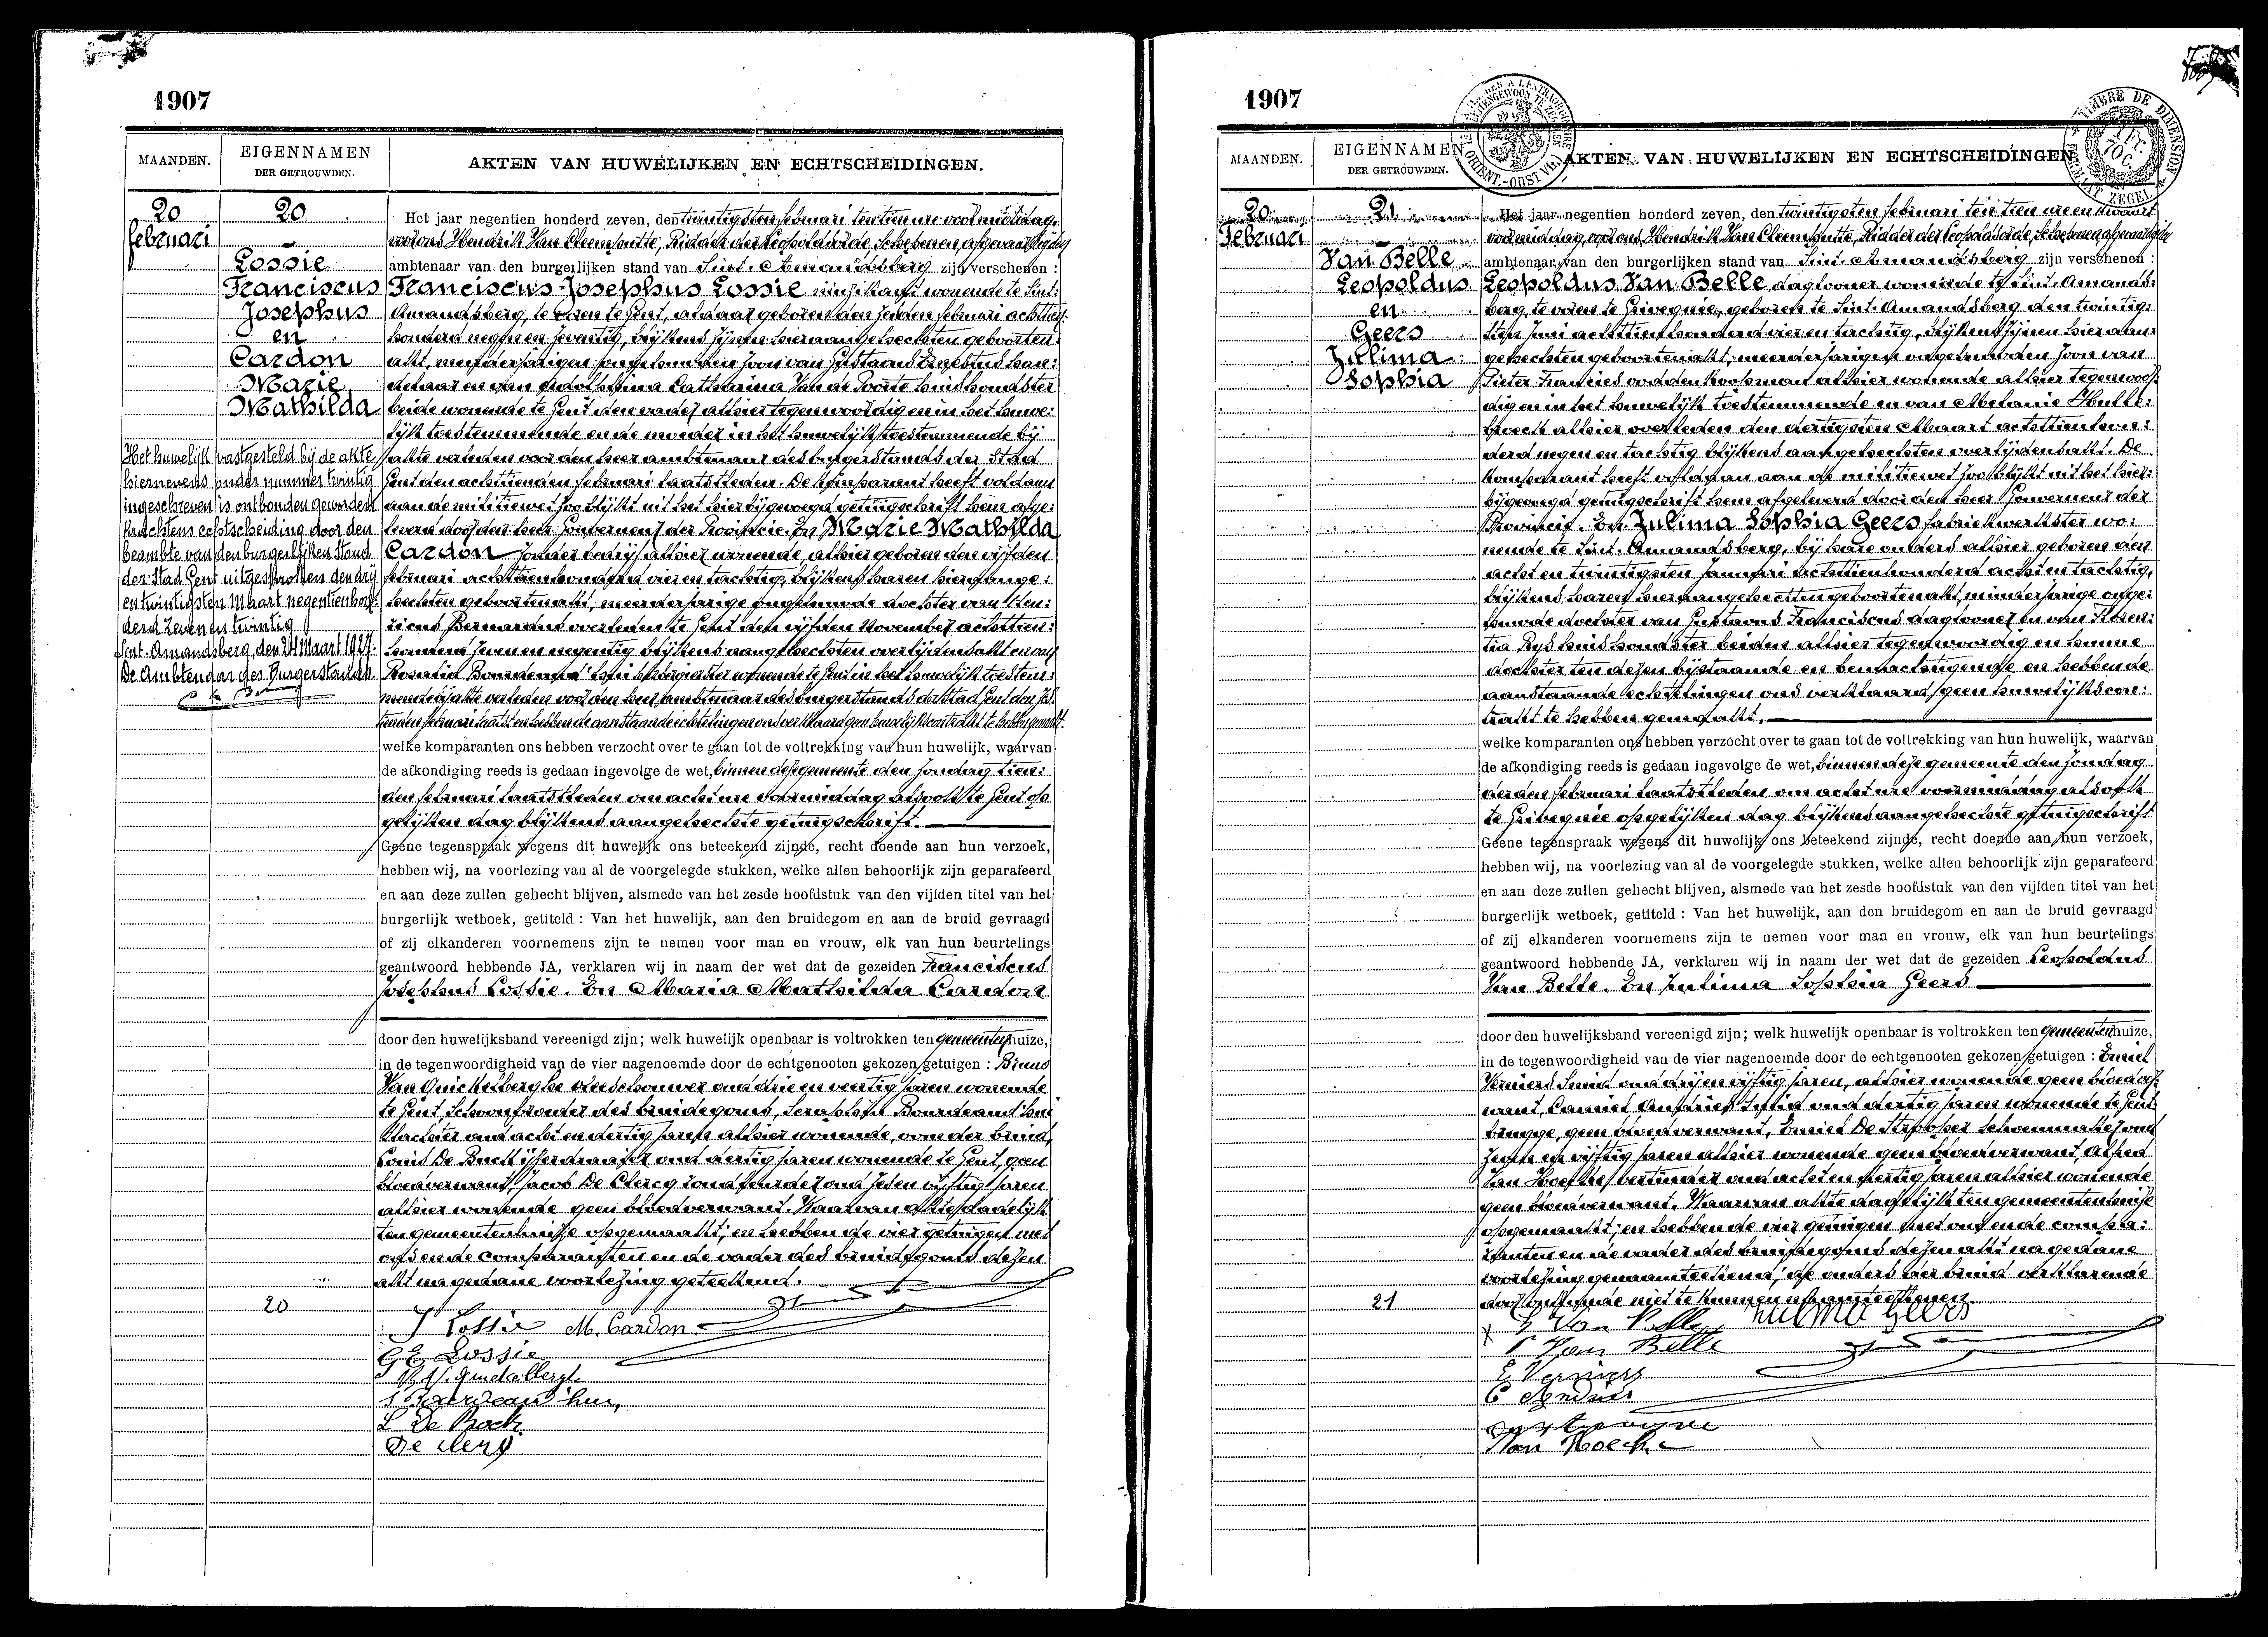 1907
MAANDEN.
EIGENNAMEN
DER GETROUWDEN.
AKTEN VAN HUWELIJKEN EN ECHTSCHEIDINGEN.
20
Februari
20
Lossie
Franciscus
Josephus
en
Cardon
Marie
Mathilda
Het huwelijk vastgesteld bij de akte
hiernevens onder nummer twintig
ingeschreven is ontbonden geworden
krachtens echtscheiding door den
beambte van den burgerlijken Stand
der Stad Gent uitgesproken den drij
en twintigsten Maart negentienhon-
derd zeven en twintig
Sint-Amandsberg, den 24 Maart 1927.
De Ambtenaar des Burgerstands.
Het jaar negentien honderd zeven, den twintigsten februari ten tien ure voormiddag,
voor ons Hendrik Van Cleemputte, Ridder der Leopoldsorde, Schepenen, afgevaardigden
ambtenaar van den burgerlijken stand van Sint-Amandsberg zijn verschenen :
Franciscus Josephus Lossie muzikant wonende te Sint-
Amandsberg, te voren te Gent, aldaar geboren den februari achttien-
honderd negen en zeventig, blijkens zijnen hieraangehechten geboorten-
akt, meerderjarigen ongehuwden zoon van Gustavus han-
delaar en van Catharina Van de Poorte huishoudster
beide wonende te Gent den vader alhier tegenwoordig en in het huwe-
lijk toestemmende en de moeder in het huwelijk toestemmende bij
akte verleden voor den heer ambtenaar des burgerstands der Stad
Gent den achttienden februari laatstleden. De komparant heeft voldaan
aan de militiewet zoo blijkt uit het hierbijgevoegd getuigschrift hem afge-
leverd door den heer Gouverneur der Provincie. En Marie Mathilda
Cardon zonder bedrijf alhier wonende, alhier geboren den vijfden
februari achttienhonderd vier en tachtig, blijkens haren hieraange-
hechten geboortenakt, meerderjarige ongehuwde dochter van Hen-
ricus Bernardus overleden te Gent den vijfden November achttien-
honderd zeven en negentig blijkens aangehechten overlijdensakt en van
Rosalia Bourdeaud'hui herbergierster wonende te Gent in het huwelijk toestem-
mende bij akte verleden voor den heer ambtenaar des burgerstands der Stad Gent den
februari laatst en hebben de aanstaande echtelingen ons verklaard geen huwelijkskontrakt te hebben gemaakt.
welke komparanten ons hebben verzocht over te gaan tot de voltrekking van hun huwelijk, waarvan
de afkondiging reeds is gedaan ingevolge de wet, binnen deze gemeente den zondag tien-
den februari laatstleden om acht ure voormiddag alsook te Gent op
gelijken dag blijkens aangehechte getuigschrift.
Geene tegenspraak wegens dit huwelijk ons beteekend zijnde, recht doende aan hun verzoek,
hebben wij, na voorlezing van al de voorgelegde stukken, welke allen behoorlijk zijn geparafeerd
en aan deze zullen gehecht blijven, alsmede van het zesde hoofdstuk van den vijfden titel van het
burgerlijk wetboek, getiteld : Van het huwelijk, aan den bruidegom en aan de bruid gevraagd
of zij elkanderen voornemens zijn te nemen voor man en vrouw, elk van hun beurtelings
geantwoord hebbende JA, verklaren wij in naam der wet dat de gezeiden Franciscus
Josephus Lossie. En Maria Mathilda Cardon
door den huwelijksband vereenigd zijn; welk huwelijk openbaar is voltrokken ten gemeentenhuize,
in de tegenwoordigheid van de vier nagenoemde door de echtgenooten gekozen getuigen : Bruno
Van Quickelberghe oud drie en veertig jaren wonende
te Gent, Schoonbroeder des bruidegoms, Bourdeaud'hui
oud acht en dertig jaren alhier wonende, oom der bruid,
Louis De Buck ijzerdraaier oud dertig jaren wonende te Gent, geen
bloedverwant, Jacob De Clercq oud zeven vijftig jaren
alhier wonende geen bloedverwant. Waarvan akte dadelijk
ten gemeentenhuize opgemaakt; en hebben de vier getuigen met
ons en de comparanten en de vader des bruidegoms dezen
akt na gedane voorlezing geteekend.
20
J Lossie M. Cardon
G E Lossie
S Bourdeaud'hui
L De Buck
De Clercq
1907
TIMBRE DE DIMENSION
1 Fr.
70 C.
MAANDEN.
EIGENNAMEN
DER GETROUWDEN.
AKTEN VAN HUWELIJKEN EN ECHTSCHEIDINGEN
20
Februari
21
Van Belle
Leopoldus
en
Geers
Zulima
Sophia
Het jaar negentien honderd zeven, den twintigsten februari ten tien ure en kwart
voormiddag, voor ons Hendrik Van Cleemputte, Ridder der Leopoldsorde, Schepenen afgevaardigden
ambtenaar van den burgerlijken stand van Sint-Amandsberg zijn verschenen :
Leopoldus Van Belle daglooner wonende te Sint-Amands-
berg, te voren te Grivegnée, geboren te Sint-Amandsberg den twintig-
sten Juni achttienhonderd vier en tachtig, blijkens zijnen hier aan-
gehechten geboortenakt, meerderjarigen ongehuwden zoon van
Pieter Francies voddenkoopman alhier wonende alhier tegenwoor-
dig en in het huwelijk toestemmende en van Melanie Hulle-
broeck alhier overleden den dertigsten Maart achttienhon-
derd negen en tachtig blijkens aangehechten overlijdensakt. De
komparant heeft voldaan aan de militiewet zoo blijkt uit het hier-
bijgevoegd getuigschrift hem afgeleverd door den heer Gouverneur der
Provincie. En Zulima Sophia Geers fabriekwerkster wo-
nende te Sint-Amandsberg, bij hare ouders alhier geboren den
acht en twintigsten Januari achttienhonderd acht en tachtig,
blijkens haren hieraangehechten geboortenakt, minderjarige onge-
huwde dochter van Gustavus Franciscus daglooner en van Floren-
tia Buys huishoudster beiden alhier tegenwoordig en hunne
dochter ten dezen bijstaande en bemachtigende en hebben de
aanstaande echtelingen ons verklaard geen huwelijkscon-
trakt te hebben gemaakt.
welke komparanten ons hebben verzocht over te gaan tot de voltrekking van hun huwelijk, waarvan
de afkondiging reeds is gedaan ingevolge de wet, binnen deze gemeente den zondag
derden februari laatstleden om acht ure voormiddag alsook
te Grivegnée op gelijken dag blijkens aangehechte getuigschrift
Geene tegenspraak wegens dit huwelijk ons beteekend zijnde, recht doende aan hun verzoek,
hebben wij, na voorlezing van al de voorgelegde stukken, welke allen behoorlijk zijn geparafeerd
en aan deze zullen gehecht blijven, alsmede van het zesde hoofdstuk van den vijfden titel van het
burgerlijk wetboek, getiteld : Van het huwelijk, aan den bruidegom en aan de bruid gevraagd
of zij elkanderen voornemens zijn te nemen voor man en vrouw, elk van hun beurtelings
geantwoord hebbende JA, verklaren wij in naam der wet dat de gezeiden Leopoldus
Van Belle. En Zulima Sophia Geers
door den huwelijksband vereenigd zijn; welk huwelijk openbaar is voltrokken ten gemeentenhuize,
in de tegenwoordigheid van de vier nagenoemde door de echtgenooten gekozen getuigen : Emiel
Verniers Smid oud drij en vijftig jaren, alhier wonende geen bloedver-
want, Camiel Andries Smid oud dertig jaren wonende te Gent-
brugge, geen bloedverwant, Emiel De schoenmaker oud
zeven en vijftig jaren alhier wonende geen bloedverwant, Alfred
Van Hoecke vertinner oud acht en veertig jaren alhier wonende
geen bloedverwant. Waarvan akte dadelijk ten gemeentenhuize
opgemaakt; en hebben de vier getuigen met ons en de compa-
ranten en de vader des bruidegoms dezen akt na gedane
voorlezing genaamteekend, de ouders der bruid verklarende
niet te kunnen naamteekenen.
21
L Van Belle Zulima Geers
P Van Belle
E Verniers
C Andries
Van Hoecke